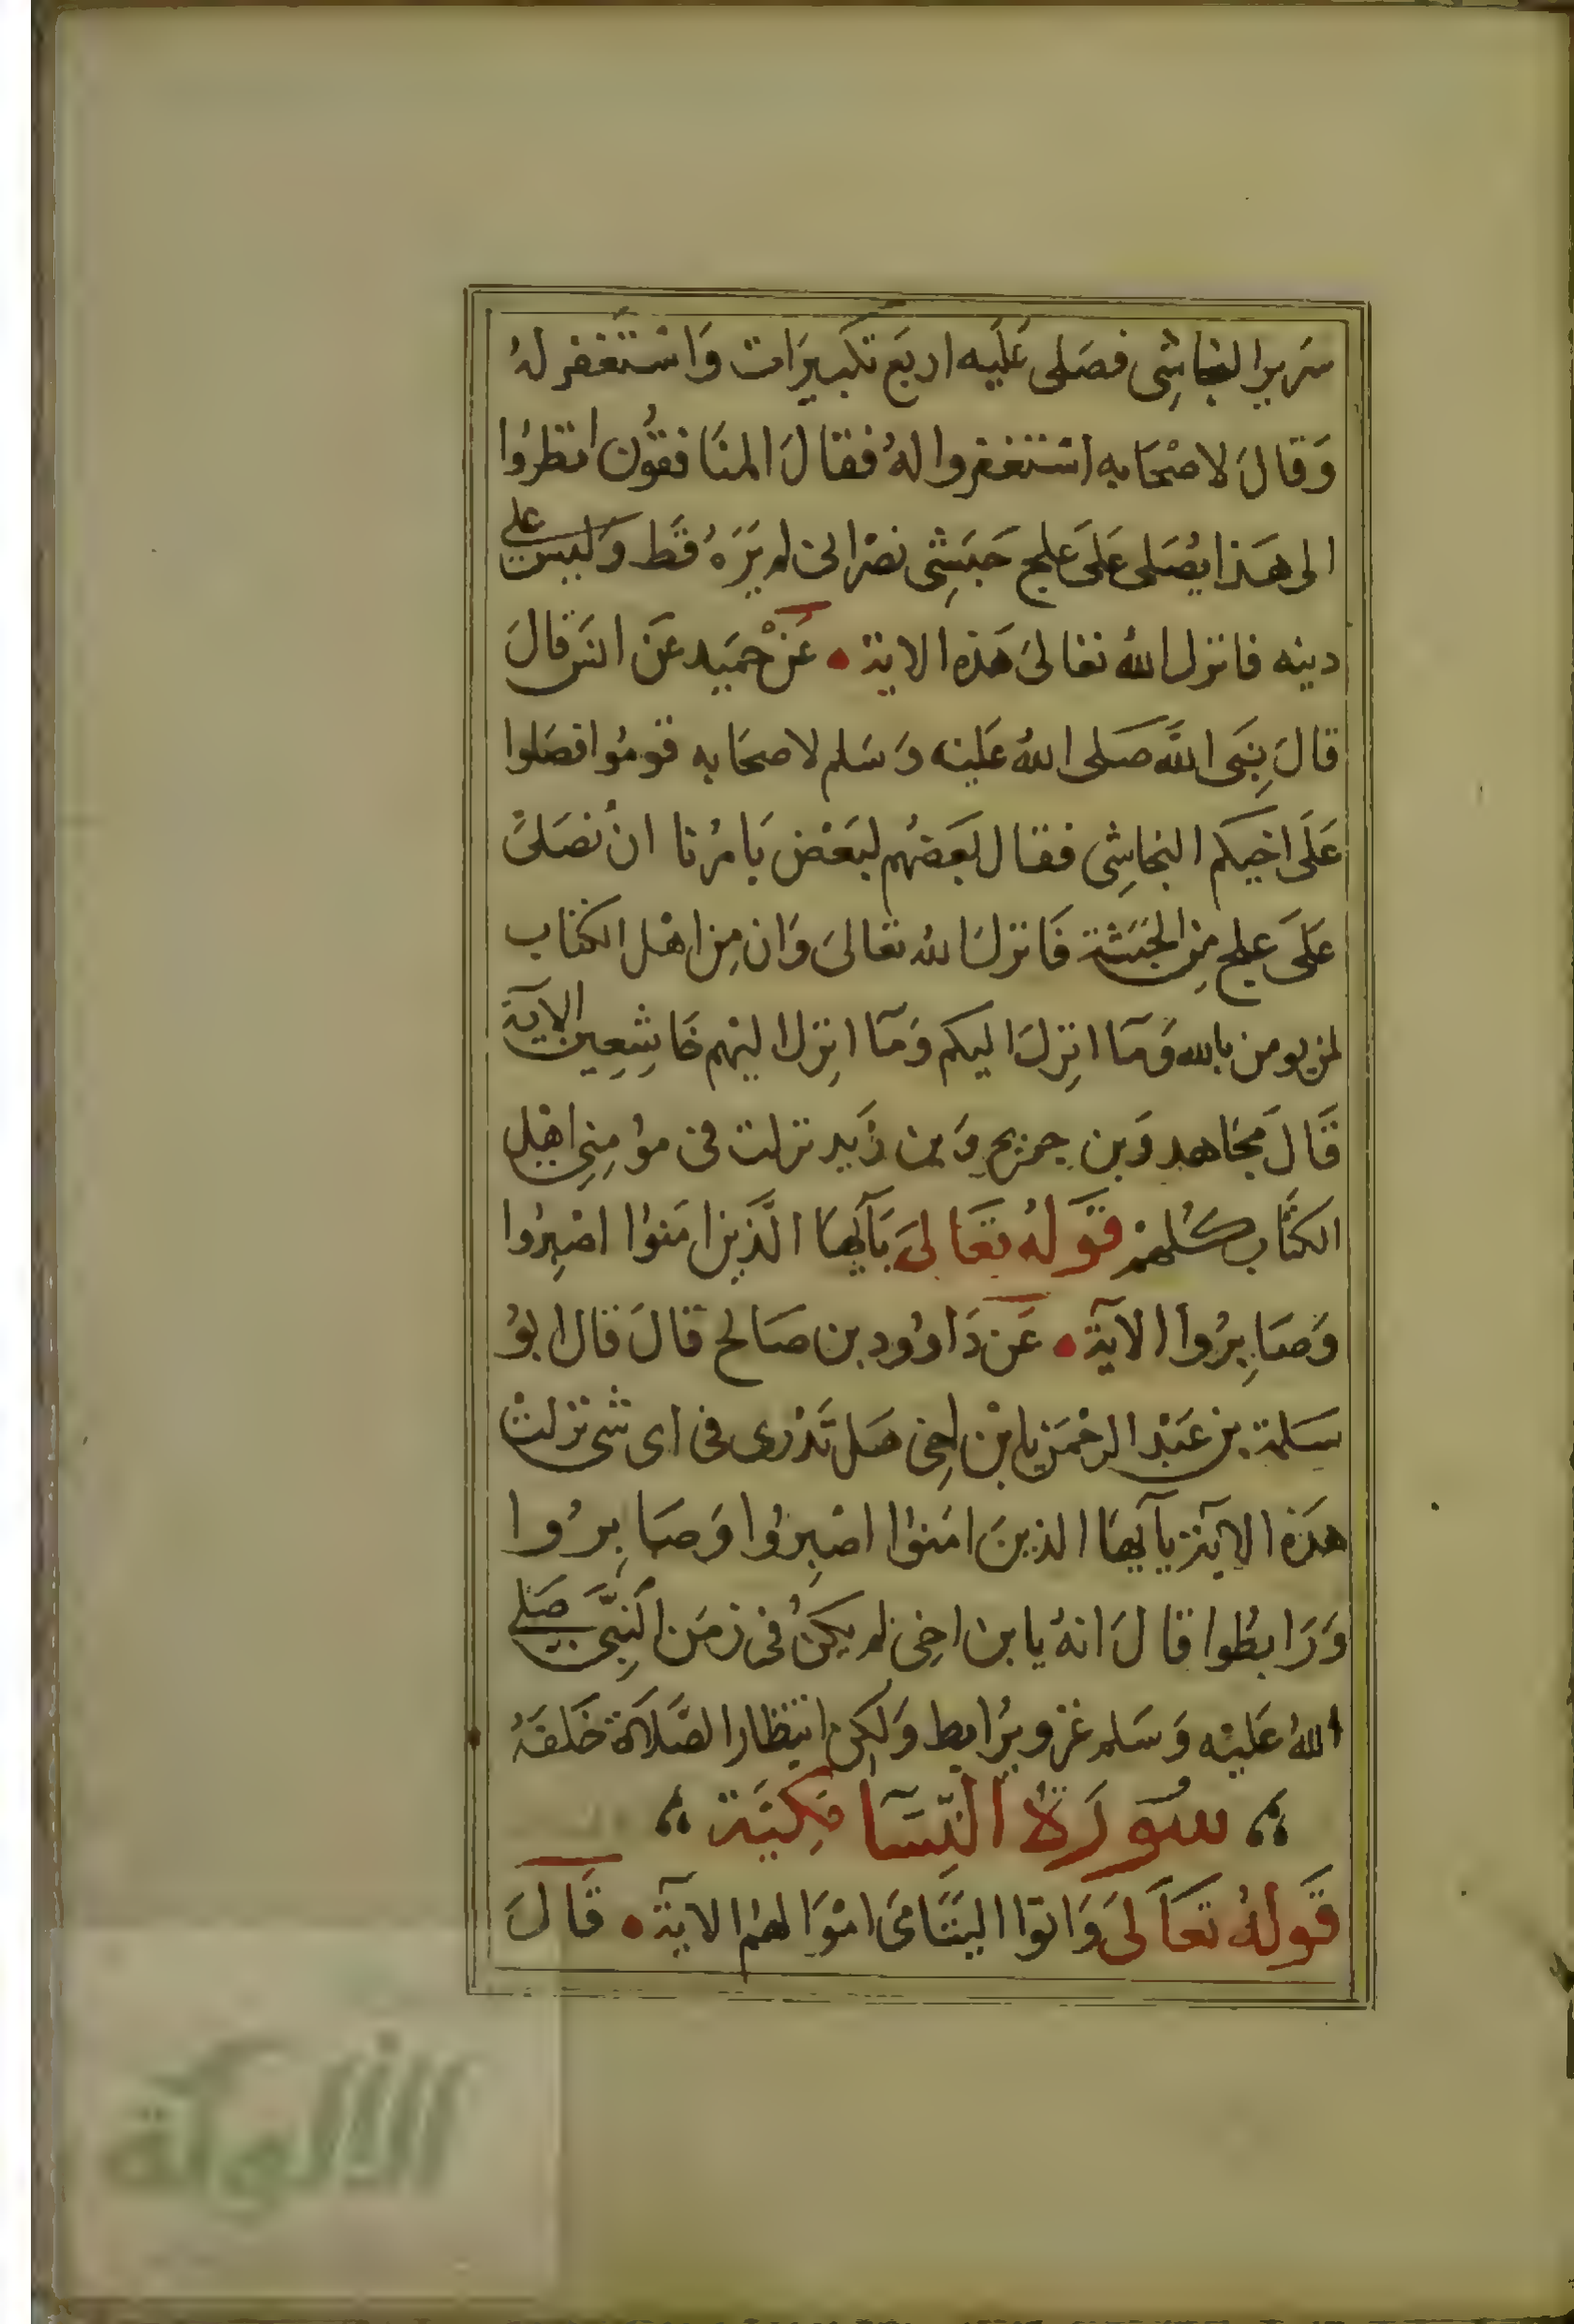 سَرير النجاشِى فصَلى عَلَيه اربَع تكبيرَات وَاسْتَغفر لهُ
وَقالَ لاصْحَابه استغفروا لهُ فقالَ المنَافقوُن انظرُوا
الى هَذا يصَلى عَلَى علج حَبَشِى نصْرانى لم يَرَهُ قط وَليسَ على
دينه فانزل اللهُ تعالىَ هَذه الاية • عَنْ حمَيد عَن انسَ قالَ
قالَ نِبَى اللَّه صَلى اللهُ عَليْه وَسَلم لاصحَابه قومُوا فصَلوا
عَلَى اخيكم النجاشِى فقال بَعضهُم لبَعْض يَامُرنا ان نصَلىَّ
عَلَى علج مِن الحَبَشة فَانزلَ الله تعالىَ وَان مِن اهْل الكتاب
لمن يومن بالله وَمَآ انِزلَ اليكم وَمَآ انِزل اليْهم خَاشِعِين الآية
قَالَ مجَاهد وَبن جريج وَبن زَيد نزلت فى موُمِنِى اهْل
الكتَاب كلهمْ قوَلهُ تعَالىَ يَآيهَا الَّذين امَنوُا اصْبِرُوا
وَصَابِرُوا الآية • عَن دَاوُود بن صَالح قالَ قال ابوُ
سَلمة بن عَبْد الرحْمَن يا بْن اخِى هَل تَدْرى فى اى شى نزلتْ
هذِه الآية يآيهَا الذينَ امَنوُا اصْبِرُوا وَصَابِرُوا
وَرَابطُوا قالَ انهُ يا بن اخِى لم يكنُ فى زمَن النِبَّى صَلى
اللهُ عَليْه وَسَلم غزو يرُابط وَلكِن انتِظار الصَّلاة خَلفَهُ
سوُرَةُ النِسَآ مَكِيَة
قَولهُ تعَالىَ وَاتوا اليَتَامىَ امْوَالهمْ الآية • قَالَ
الألوكة